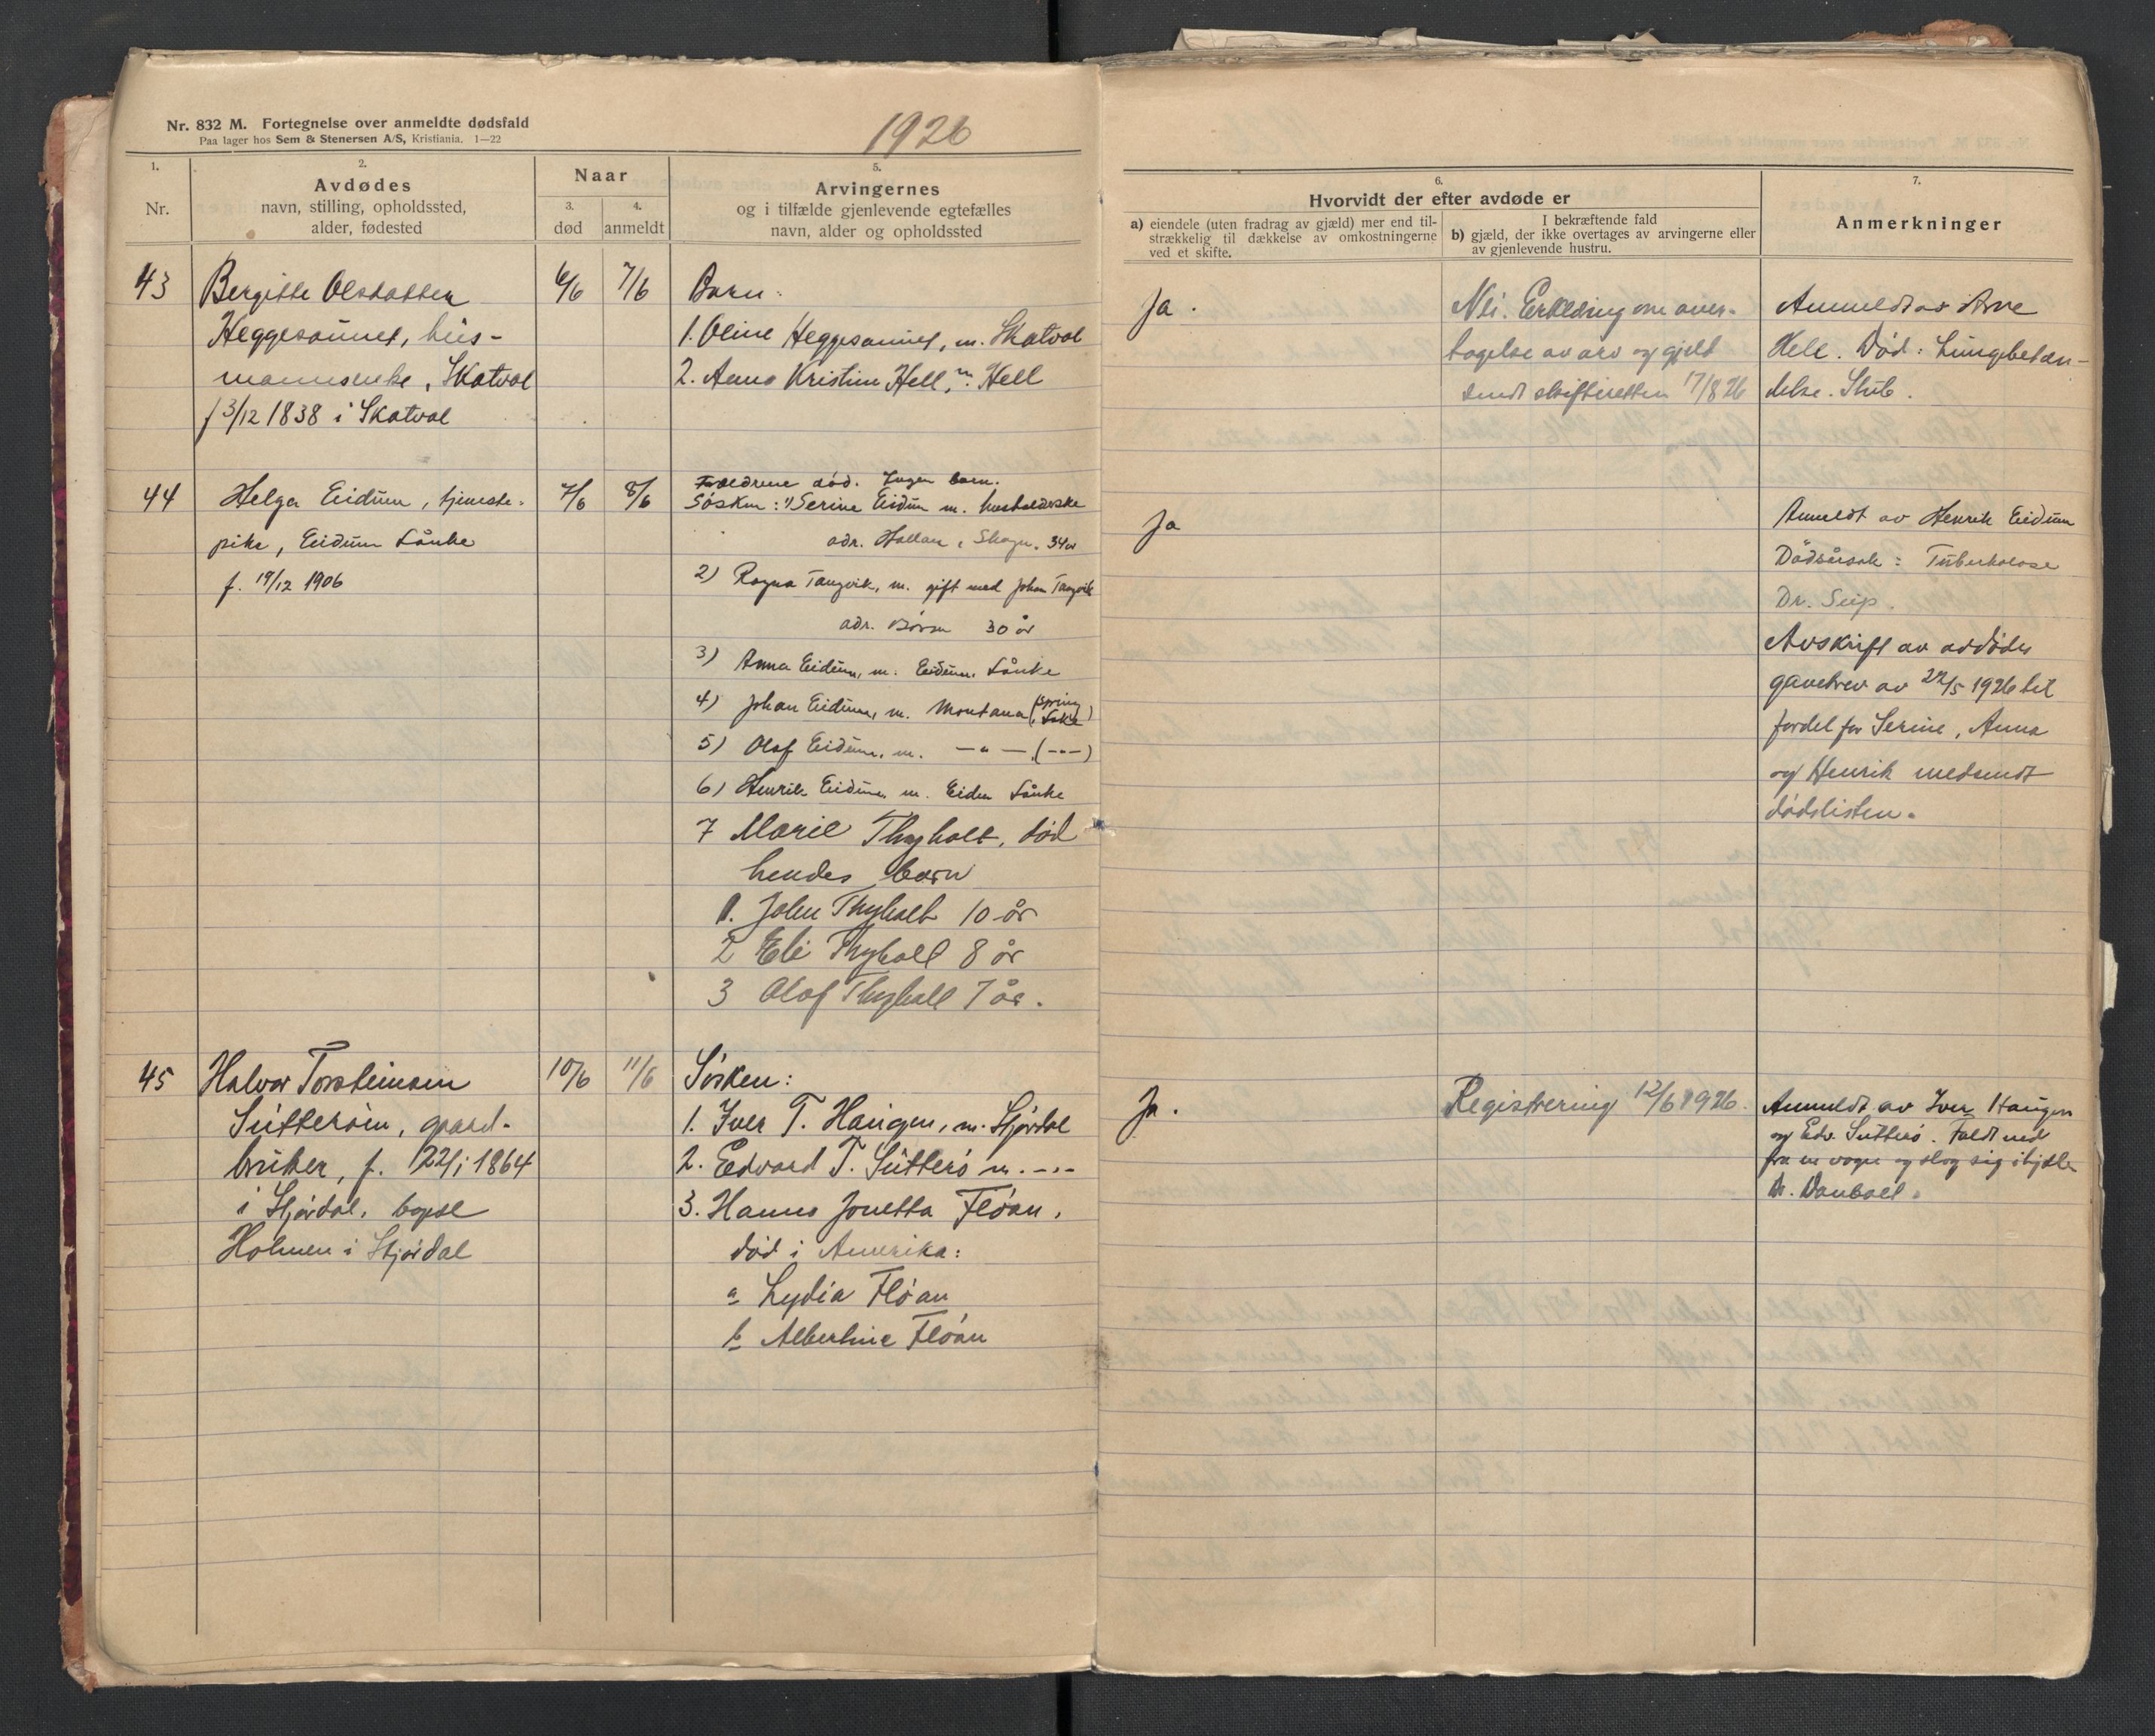 Nr. 832 M. Fortegnelse over anmeldte dødsfald
Paa lager hos Sem & Stenersen A/S, Kristiania. 1—22
1926
1.
Nr.
2.
Avdødes
navn, stilling, opholdssted,
alder, fødested
Naar
3.
død
4.
anmeldt
5.
Arvingernes
og i tilfælde gjenlevende egtefælles
navn, alder og opholdssted
6.
Hvorvidt der efter avdøde er
a) eiendele (uten fradrag av gjæld) mer end til-
strækkelig til dækkelse av omkostningerne
ved et skifte.
I bekræftende fald
b) gjæld, der ikke overtages av arvingerne eller
av gjenlevende hustru.
7.
Anmerkninger
43
Bergitte Olsdatter
Heggesaunet, hus-
mannsenke, Skatval
f 3/12 1838 i Skatval
6/6
7/6
Barn:
1. Oline Heggesaunet, m. Skatval
2. Anna Kristine Hell, m. Hell
Ja.
Nei. Erklæring om over-
tagelse av arv og gjeld
sendt skifteretten 17/8 26
Anmeldt av Arne
Hell. Død: Lungebetæn-
delse. Stub.
44
Helga Eidum, tjeneste-
pike, Eidum Lånke
f. 19/12 1906
7/6
8/6
Foreldrene død. Ingen barn.
Søsken: 1) Serine Eidum m. husholderske
adr. Hollan, Skogn. 34 år
2) Ragna Tangvik, m. gift med Johan Tangvik
adr. Børsa 30 år
3) Anna Eidum, m. Eidum, Lånke
4) Johan Eidum, m. Montana (Spring Lake)
5) Olaf Eidum, m. —"— (—"—)
6) Henrik Eidum m. Eidum Lånke
7 Marie Thyholt, død
hendes barn
1. John Thyholt 10 år
2 Eli Thyholt 8 år
3 Olaf Thyholt 7 år.
Ja
Anmeldt av Henrik Eidum
Dödsårsak: Tuberkolose
Dr. Seip.
Avskrift av avdødes
gavebrev av 22/5 1926 til
fordel for Serine, Anna
og Henrik medsendt
dødslisten.
45
Halvor Torsteinsen
Sutterøin, gaard-
bruker, f. 22/1 1864
i Stjørdal, bopæl
Holmen i Stjørdal
10/6
11/6
Søsken:
1. Iver T. Haugen, m. Stjørdal
2. Edvard T. Sutterø m. -"-
3. Hanna Jonetta Fløan,
død i Amerika:
a Lydia Fløan
b Albertine Fløan
Ja.
Registrering 12/6 1926.
Anmeldt av Iver Haugen
og Edv. Sutterø. Faldt ned
fra en vogn og slog sig ihjæl.
Dr.